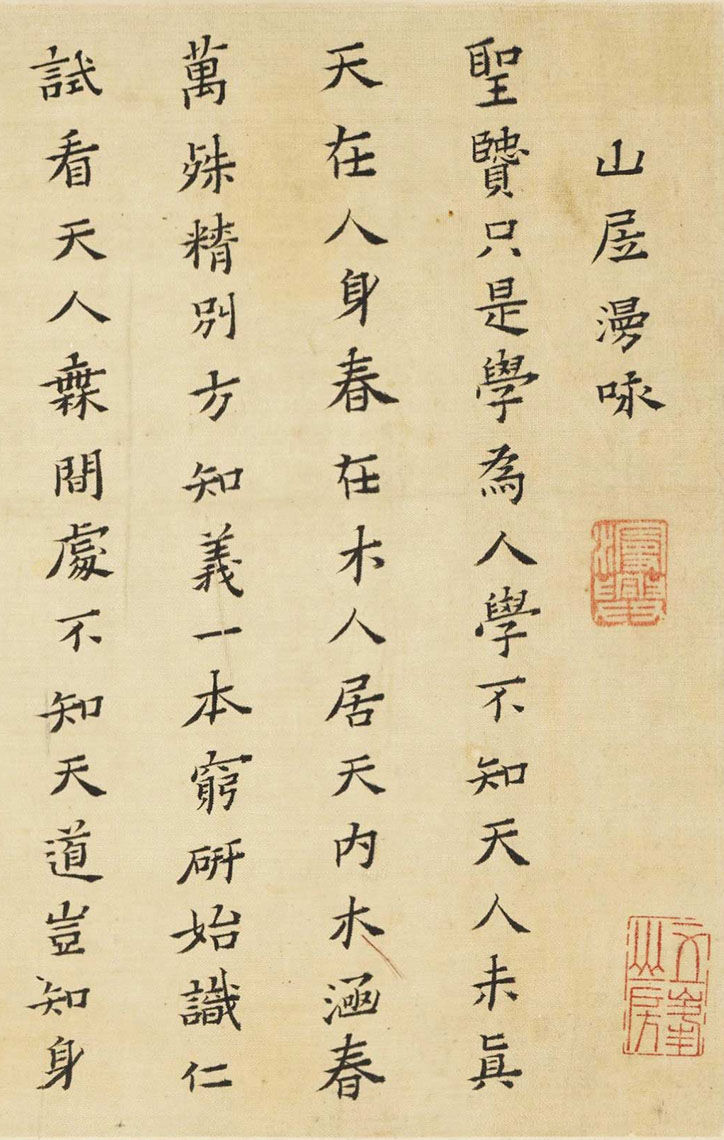 山㞐漫咏
聖贒只是學為人學不知天人未眞
天在人身春在木人居天內木涵春
萬殊精別方知義一本窮硏始識仁
試看天人橆間處不知天道豈知身